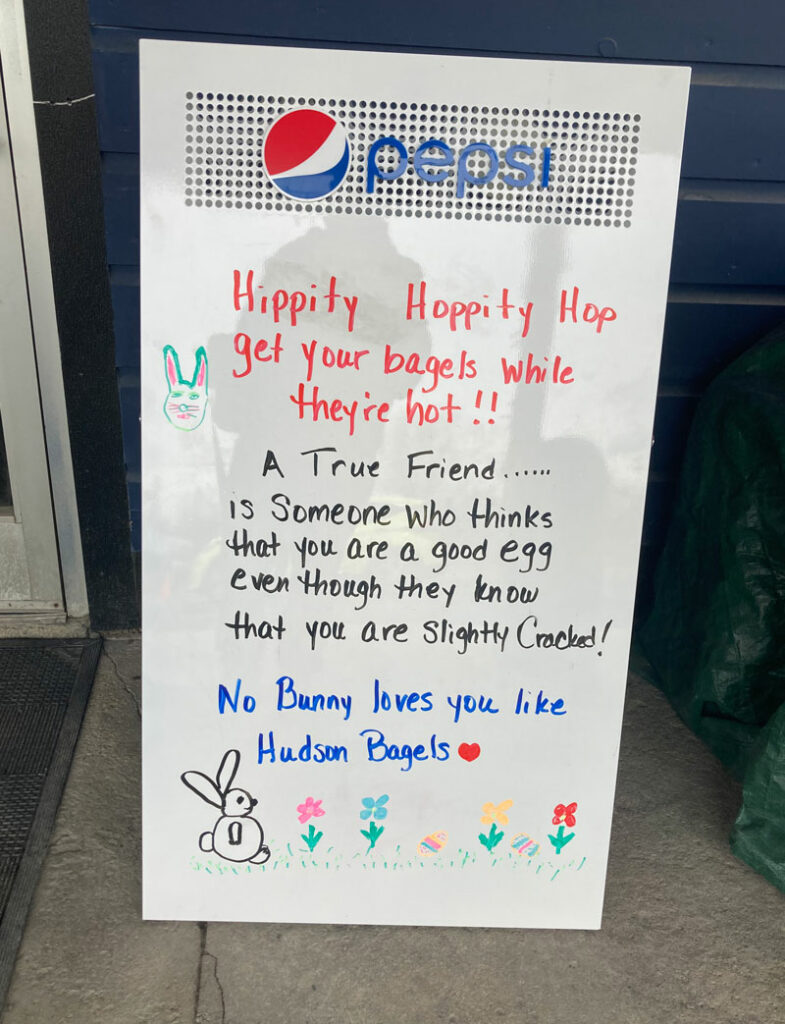 pepsi
Hippity Hoppity Hop
get your bagels while
they're hot!!
A True Friend......
is Someone who thinks
that you are a good egg
even though they know
that you are slightly Cracked!
No Bunny loves you like
Hudson Bagels